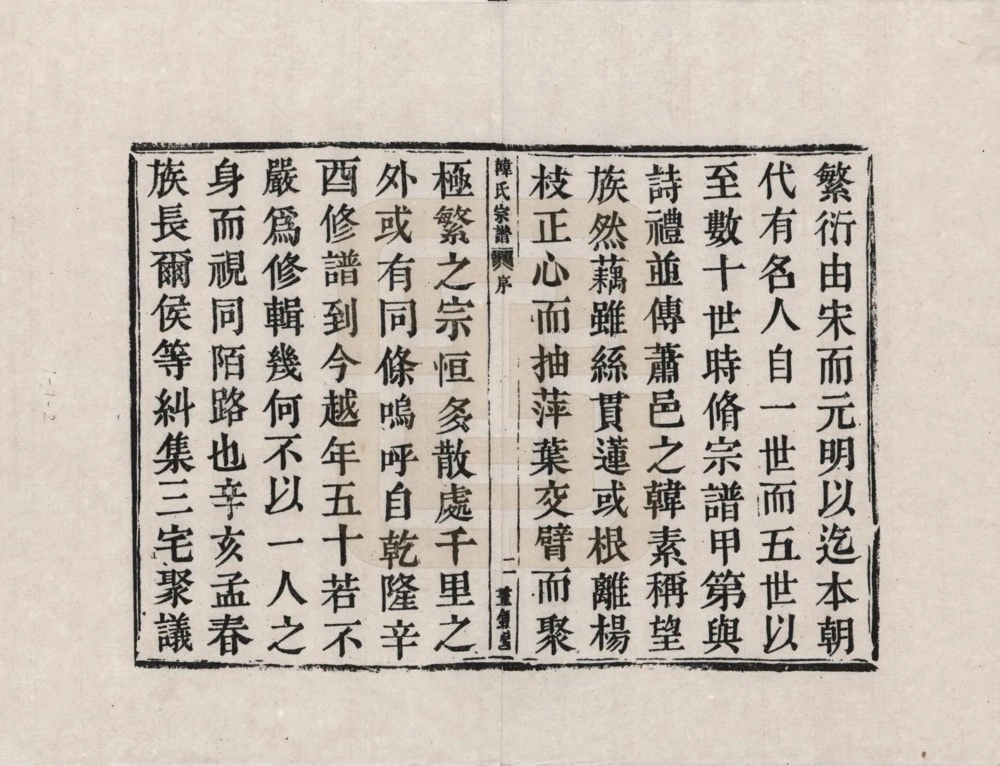 繁衍由宋而元明以迄本朝
代有名人自一世而五世以
至數十世時脩宗譜甲第與
詩禮並傳蕭邑之韓素稱望
族然藕雖絲貫蓮或根離楊
枝正心而抽萍葉交臂而聚
韓氏宗譜 序 二
極繁之宗恒多散處千里之
外或有同條嗚呼自乾隆辛
酉修譜到今越年五十若不
嚴爲修輯幾何不以一人之
身而視同陌路也辛亥孟春
族長爾侯等糾集三宅聚議